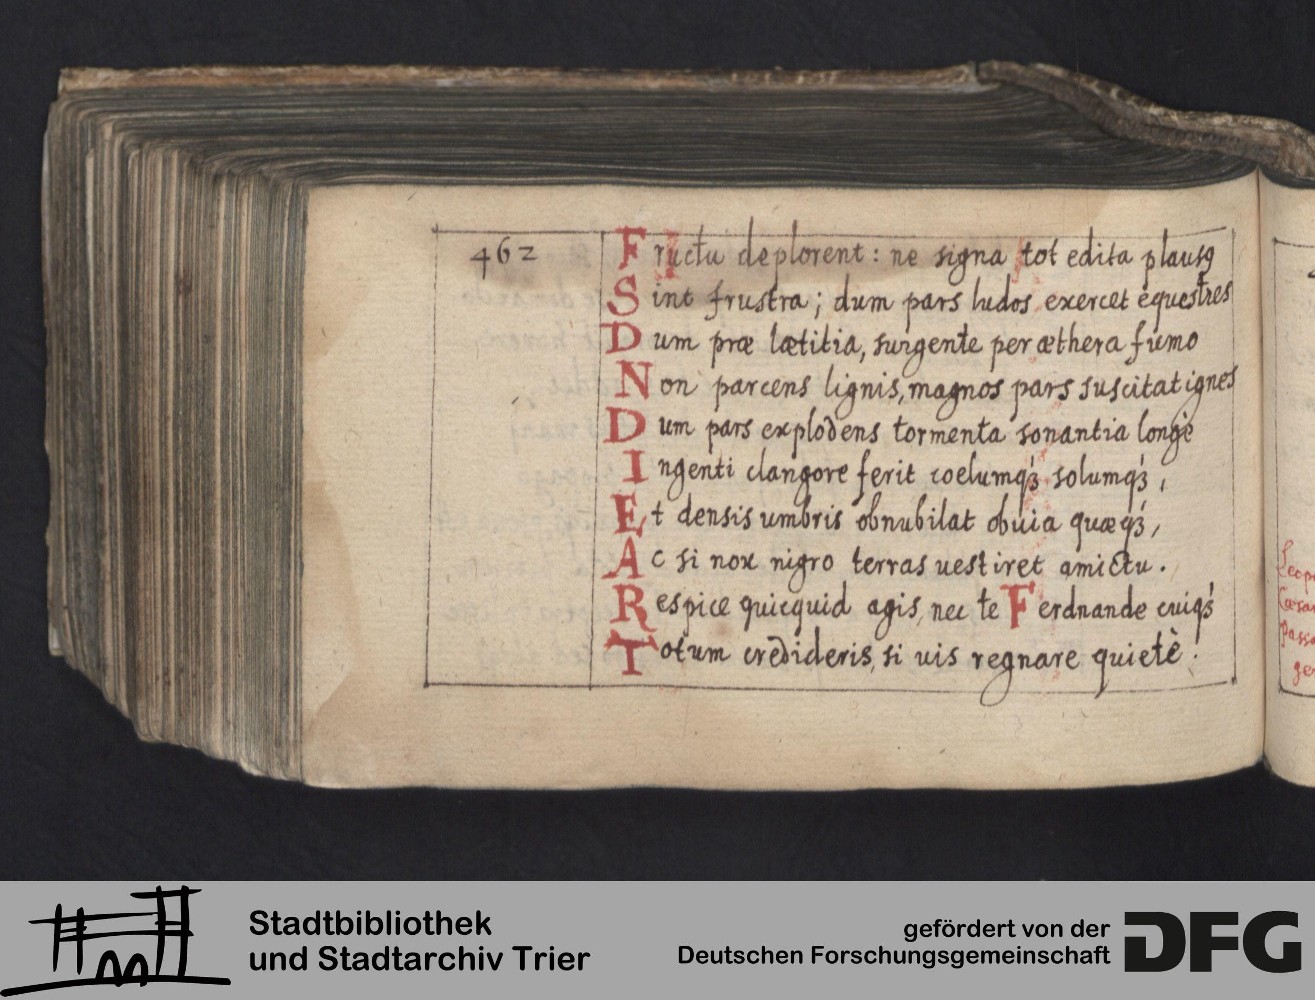 462
Fructu deplorent: ne signa tot edita plausꝗ
Sint frustra; dum pars ludos exercet equestres
Dum præ lætitia, surgente per æthera fumo
Non parcens lignis, magnos pars suscitat ignes
Dum pars explodens tormenta sonantia longè
Ingenti clangore ferit coelumqꝫ́ solumqꝫ́,
Et densis umbris obnubilat obuia quæqꝫ́,
Ac si nox nigro terras uestiret amictu.
Respice quicquid agis, nec te Ferdnande cuiqꝫ́
Totum credideris, si uis regnare quietè.
Stadtbibliothek
und Stadtarchiv Trier
gefördert von der
Deutschen Forschungsgemeinschaft
DFG